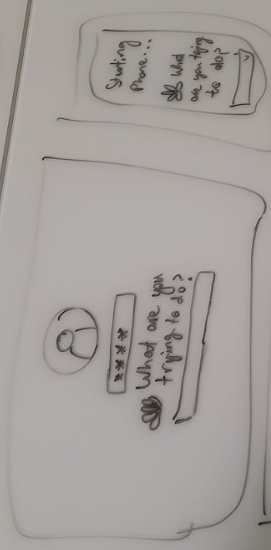 Starting
Phone...
What
are you trying
to do?
****
What are you
trying to do?